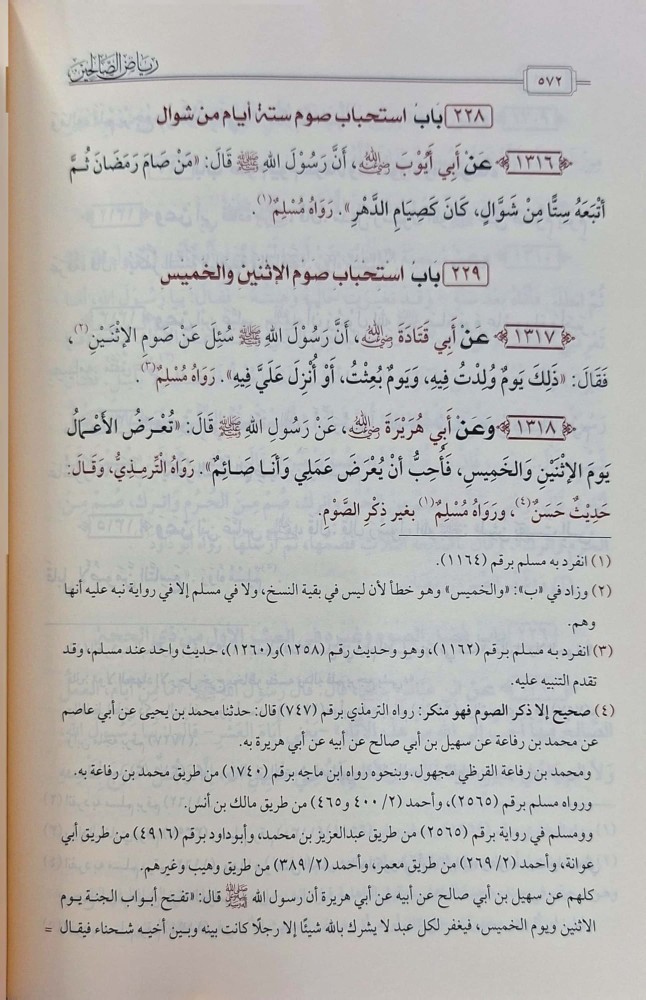 رياض الصالحين
٥٧٢
٢٢٨ بَابُ استحباب صوم ستة أيام من شوال
١٣١٦ عَنْ أَبِي أَيُّوبَ رضي الله عنه، أَنَّ رَسُوْلَ اللهِ ﷺ قَالَ: «مَنْ صَامَ رَمَضَانَ ثُمَّ
أَتْبَعَهُ سِتًّا مِنْ شَوَّالٍ، كَانَ كَصِيَامِ الدَّهْرِ». رَوَاهُ مُسْلِمٌ(١).
٢٢٩ بَابُ استحباب صوم الإثنين والخميس
١٣١٧ عَنْ أَبِي قَتَادَةَ رضي الله عنه، أَنَّ رَسُوْلَ اللهِ ﷺ سُئِلَ عَنْ صَومِ الإِثْنَيْنِ(٢)،
فَقَالَ: «ذَلِكَ يَومٌ وُلِدْتُ فِيهِ، وَيَومٌ بُعِثْتُ، أَوْ أُنْزِلَ عَلَيَّ فِيهِ». رَوَاهُ مُسْلِمٌ(٣).
١٣١٨ وَعَنْ أَبِي هُرَيْرَةَ رضي الله عنه، عَنْ رَسُولِ اللهِ ﷺ قَالَ: «تُعْرَضُ الأَعْمَالُ
يَومَ الإِثْنَيْنِ وَالخَمِيسِ، فَأُحِبُّ أَنْ يُعْرَضَ عَمَلِي وَأَنَا صَائِمٌ». رَوَاهُ التِّرمِذِيُّ، وَقَالَ:
حَدِيْثٌ حَسَنٌ(٤)، ورَوَاهُ مُسْلِمٌ(١) بغير ذِكْرِ الصَّوْمِ.
(١) انفرد به مسلم برقم (١١٦٤).
(٢) وزاد في «ب»: «والخميس» وهو خطأ لأن ليس في بقية النسخ، ولا في مسلم إلا في رواية نبه عليه أنها
وهم.
(٣) انفرد به مسلم برقم (١١٦٢)، وهو وحديث رقم (١٢٥٨) و(١٢٦٠)، حديث واحد عند مسلم، وقد
تقدم التنبيه عليه.
(٤) صحيح إلا ذكر الصوم فهو منكر: رواه الترمذي برقم (٧٤٧) قال: حدثنا محمد بن يحيى عن أبي عاصم
عن محمد بن رفاعة عن سهيل بن أبي صالح عن أبيه عن أبي هريرة به.
ومحمد بن رفاعة القرظي مجهول. وبنحوه رواه ابن ماجه برقم (١٧٤٠) من طريق محمد بن رفاعة به.
ورواه مسلم برقم (٢٥٦٥)، وأحمد (٢/ ٤٠٠ و٤٦٥) من طريق مالك بن أنس.
وومسلم في رواية برقم (٢٥٦٥) من طريق عبدالعزيز بن محمد، وأبوداود برقم (٤٩١٦) من طريق أبي
عوانة، وأحمد (٢/ ٢٦٩) من طريق معمر، وأحمد (٢/ ٣٨٩) من طريق وهيب وغيرهم.
كلهم عن سهيل بن أبي صالح عن أبيه عن أبي هريرة أن رسول الله ﷺ قال: «تفتح أبواب الجنة يوم
الاثنين ويوم الخميس، فيغفر لكل عبد لا يشرك بالله شيئًا إلا رجلًا كانت بينه وبين أخيه شحناء فيقال =